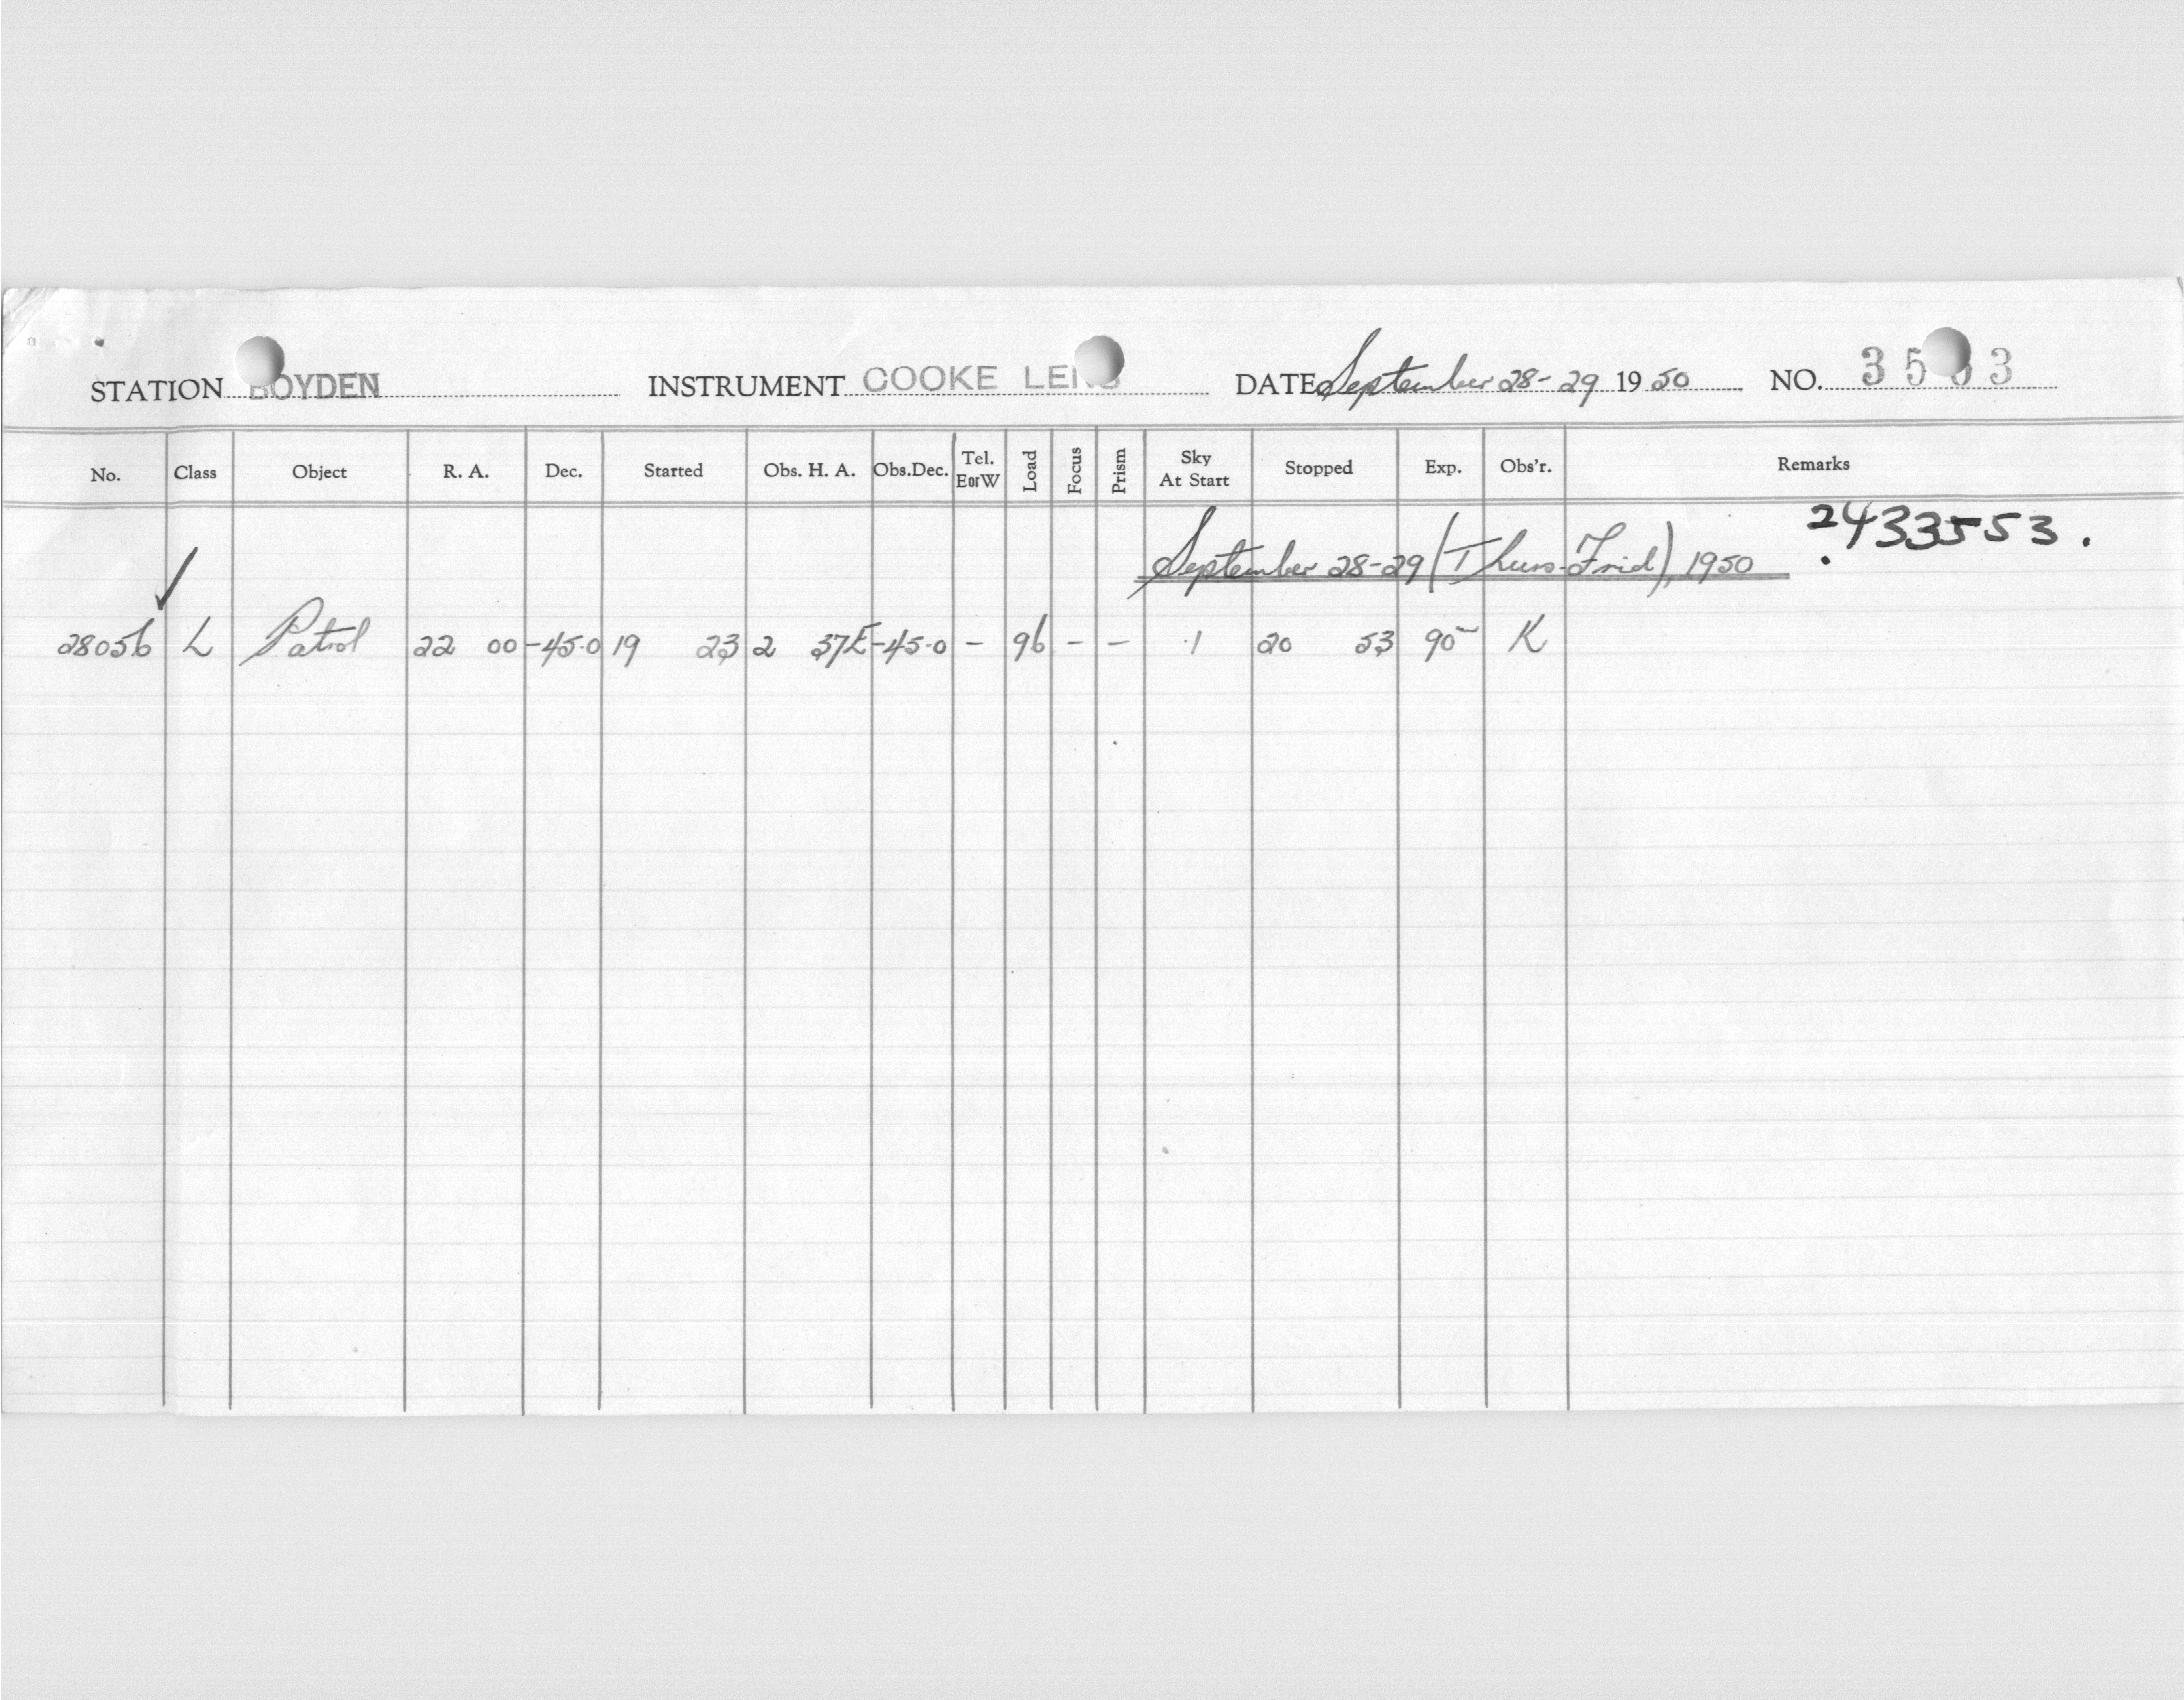 STATION BOYDEN INSTRUMENT COOKE LENS DATE September 28-29 1950 NO.
No. Class Object R. A. Dec. Started Obs. H. A. Obs.Dec. Tel. E or W Load Focus Prism Sky At Start Stopped Exp. Obs'r. Remarks
September 28-29 (Thurs-Frid), 1950 2433553.
28056 L Patrol 22 00 -45.0 19 23 2 37E -45.0 - 96 - - .1 20 53 90 K